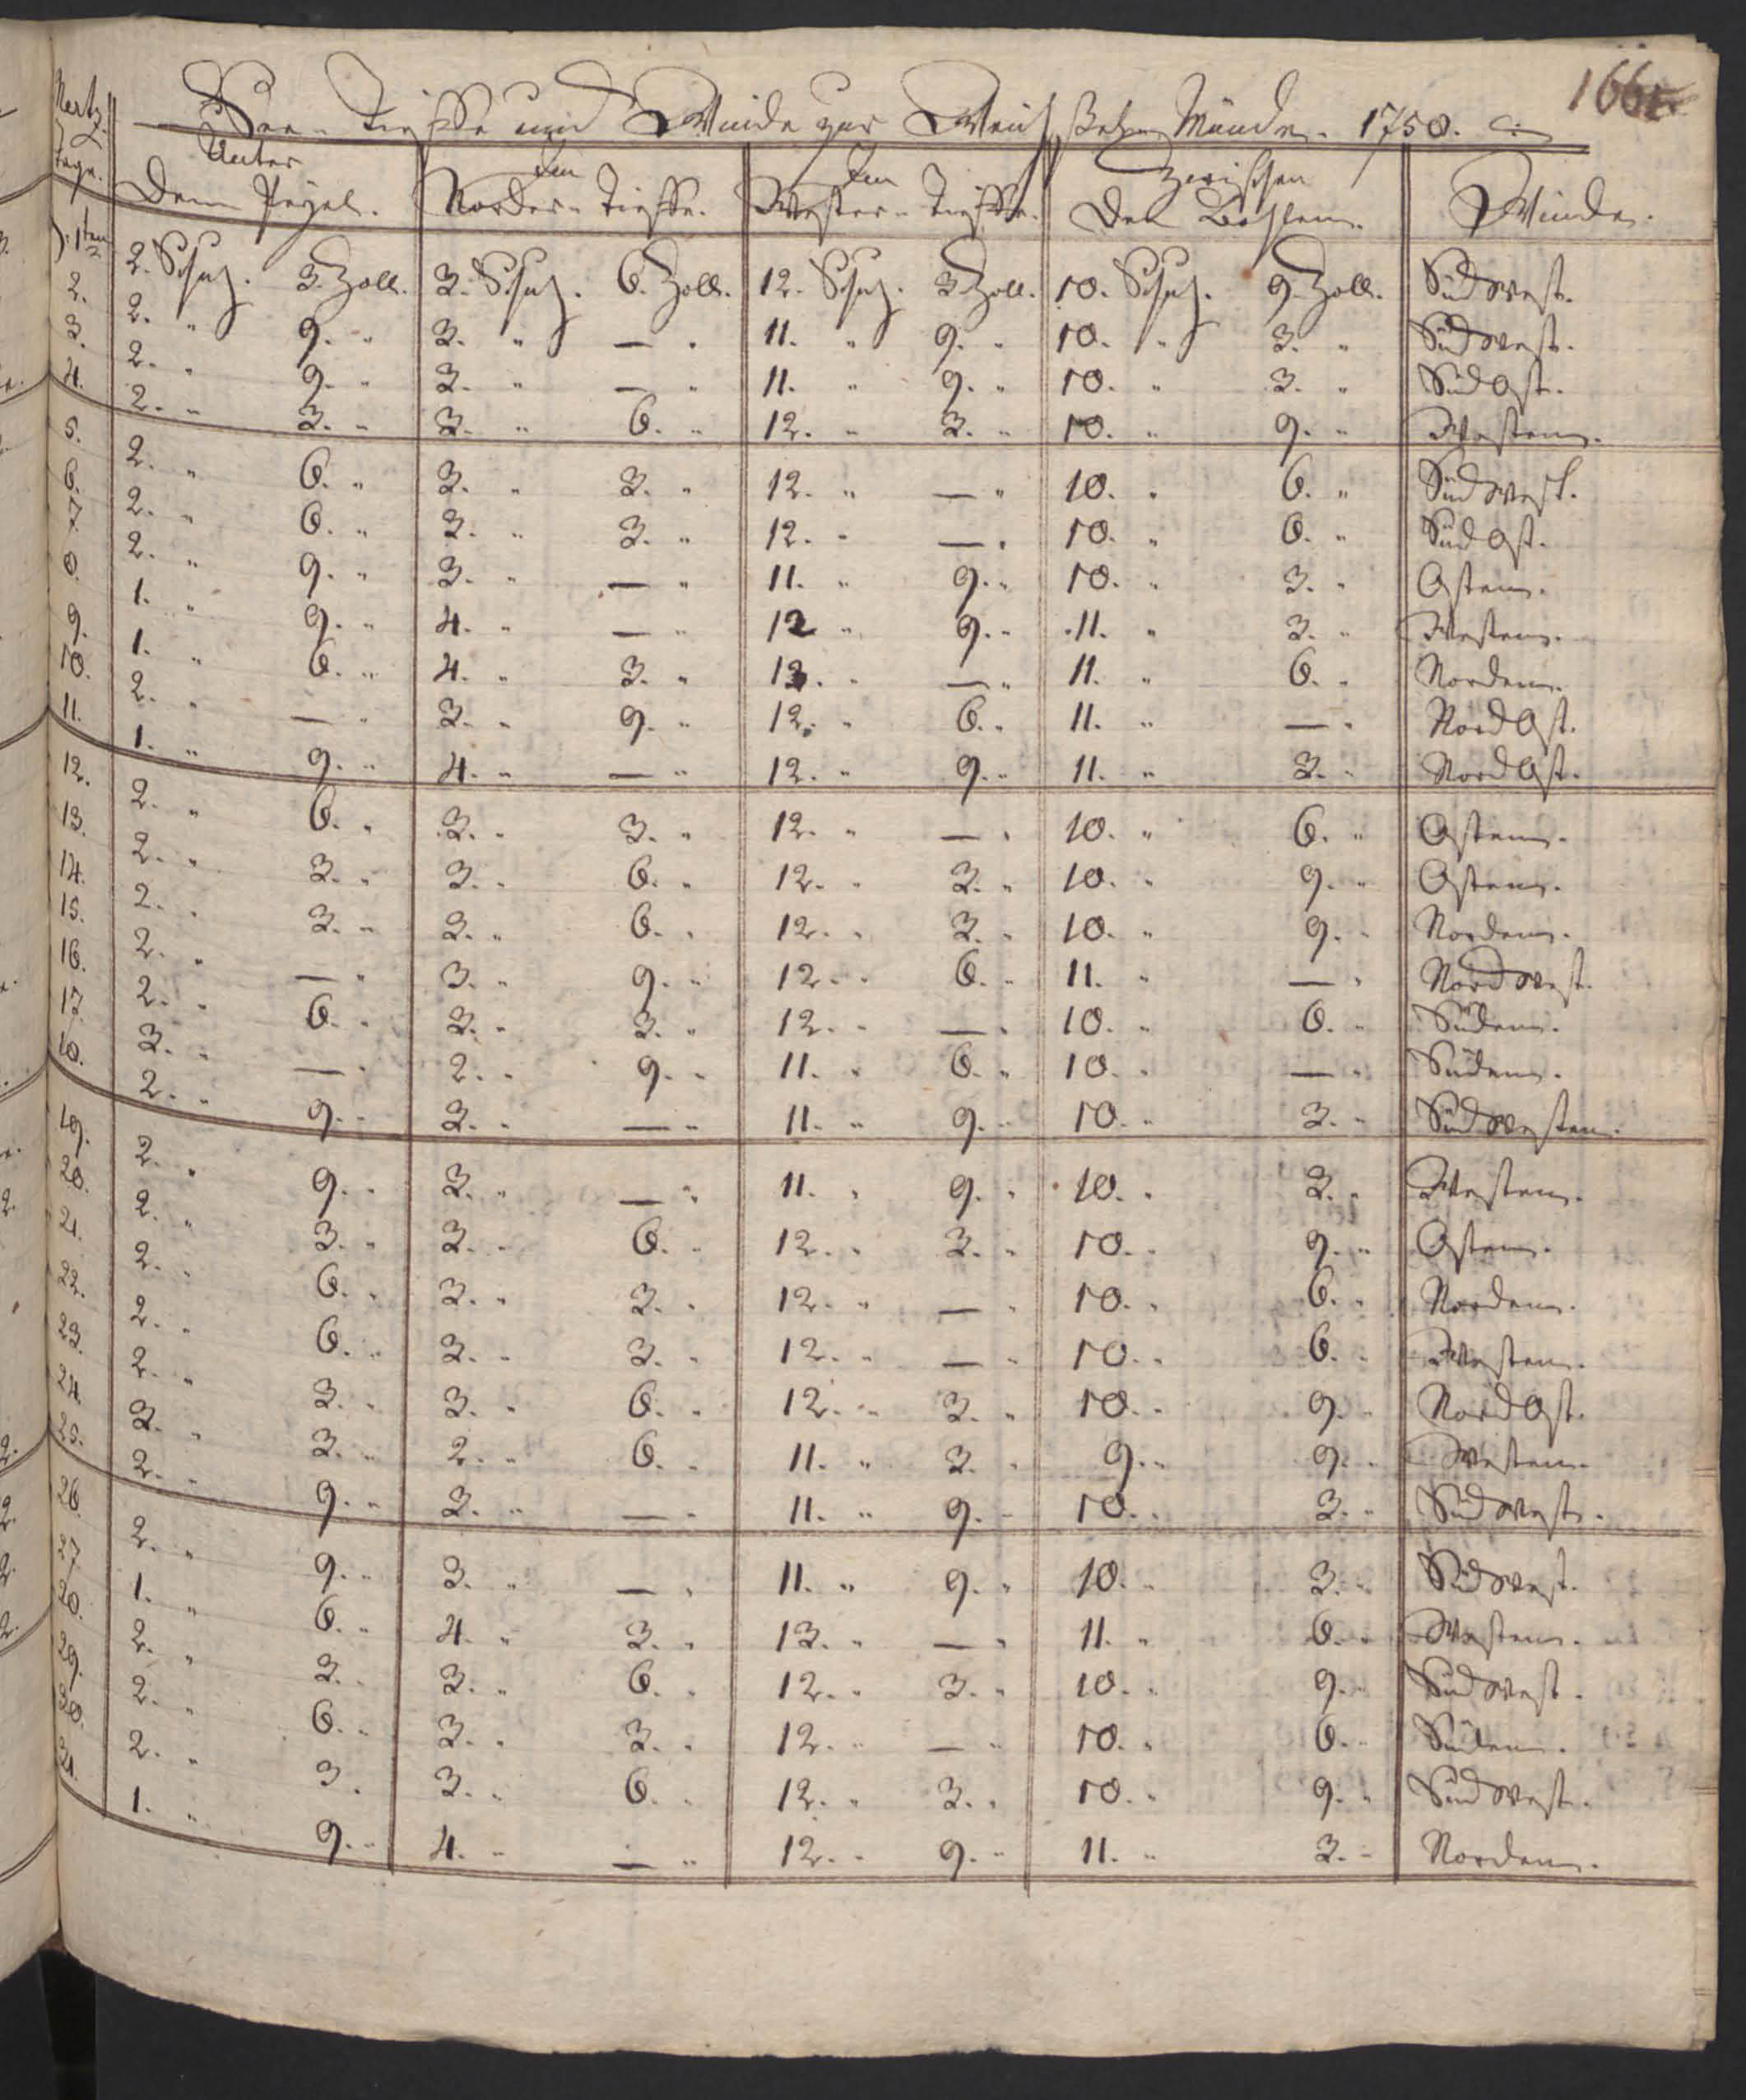 166
Martz. See-Tieffe und Winde zur Weichselmünde. 1750.
Tage. Unter Im Im Zwischen
Dem Pegel. Norder-Tieffe. Wester-Tieffe. Den Bohlen. Winde.
D. 1ten 2. Schuh. 3. Zoll. 3. Schuh. 6. Zoll. 12. Schuh. 3. Zoll. 10. Schuh. 9. Zoll. Südwest.
2. 2. " 9. " 3. " — " 11. " 9. " 10. " 3. " Südwest.
3. 2. " 9. " 3. " — " 11. " 9. " 10. " 3. " Südost.
4. 2. " 3. " 3. " 6. " 12. " 3. " 10. " 9. " Westen.
5. 2. " 6. " 3. " 3. " 12. " — " 10. " 6. " Südwest.
6. 2. " 6. " 3. " 3. " 12. " — " 10. " 6. " Südost.
7. 2. " 9. " 3. " — " 11. " 9. " 10. " 3. " Osten.
8. 1. " 9. " 4. " — " 12 " 9. " 11. " 3. " Westen.
9. 1. " 6. " 4. " 3. " 13. " — " 11. " 6. " Norden.
10. 2. " — " 3. " 9. " 12. " 6. " 11. " — " Nordost.
11. 1. " 9. " 4. " — " 12. " 9. " 11. " 3. " Nordost.
12. 2. " 6. " 3. " 3. " 12. " — " 10. " 6. " Osten.
13. 2. " 3. " 3. " 6. " 12. " 3. " 10. " 9. " Osten.
14. 2. " 3. " 3. " 6. " 12. " 3. " 10. " 9. " Norden.
15. 2. " — " 3. " 9. " 12. " 6. " 11. " — " Nordwest.
16. 2. " 6. " 3. " 3. " 12. " — " 10. " 6. " Süden.
17. 3. " — " 2. " 9. " 11. " 6. " 10. " — " Süden.
18. 2. " 9. " 3. " — " 11. " 9. " 10. " 3. " Südwesten.
19. 2. " 9. " 3. " — " 11. " 9. " 10. " 3. " Westen.
20. 2. " 3. " 3. " 6. " 12. " 3. " 10. " 9. " Osten.
21. 2. " 6. " 3. " 3. " 12. " — " 10. " 6. " Norden.
22. 2. " 6. " 3. " 3. " 12. " — " 10. " 6. " Westen.
23. 2. " 3. " 3. " 6. " 12. " 3. " 10. " 9. " Nordost.
24. 3. " 3. " 2. " 6. " 11. " 3. " 9. " 9. " Westen.
25. 2. " 9. " 3. " — " 11. " 9. " 10. " 3. " Südwest.
26. 2. " 9. " 3. " — " 11. " 9. " 10. " 3. " Südwest.
27. 1. " 6. " 4. " 3. " 13. " — " 11. " 6. " Westen.
28. 2. " 3. " 3. " 6. " 12. " 3. " 10. " 9. " Südwest.
29. 2. " 6. " 3. " 3. " 12. " — " 10. " 6. " Süden.
30. 2. " 3. 3. " 6. " 12. " 3. " 10. " 9. " Südwest.
31. 1. " 9. " 4. " — " 12. " 9. " 11. " 3. " Norden.